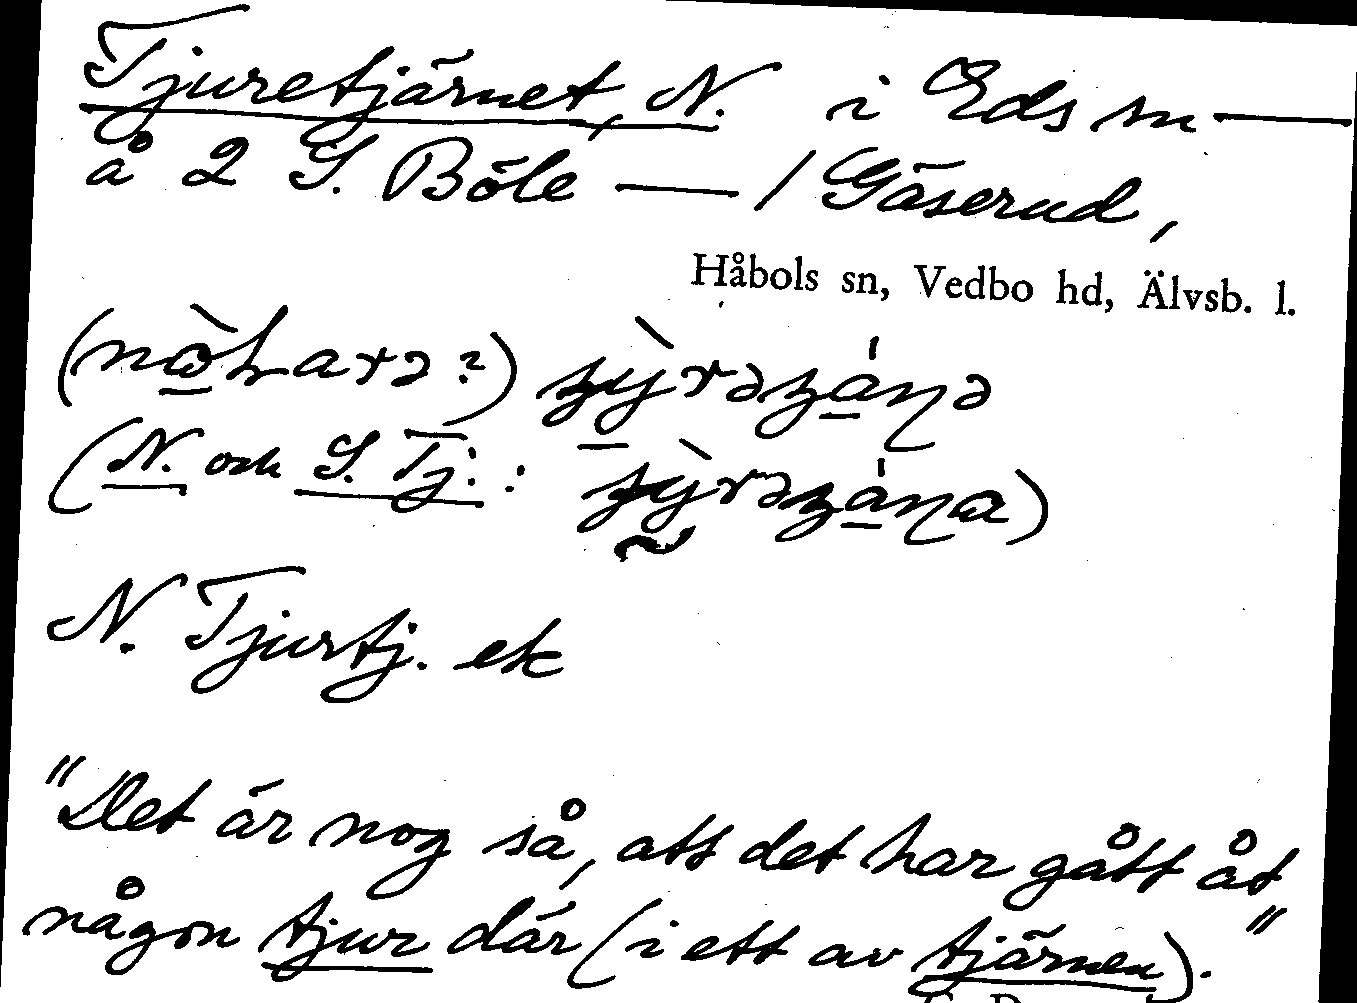 Tjuretjärnet, N. i Eds sn —
å 2 S. Böle — / Gäserud,
Håbols sn, Vedbo hd, Älvsb. l.
(N. och S. Tj.:
N. Tjurtj. ek
"Det är nog så, att det har gått åt
någon tjur där (i ett av tjärnen)."